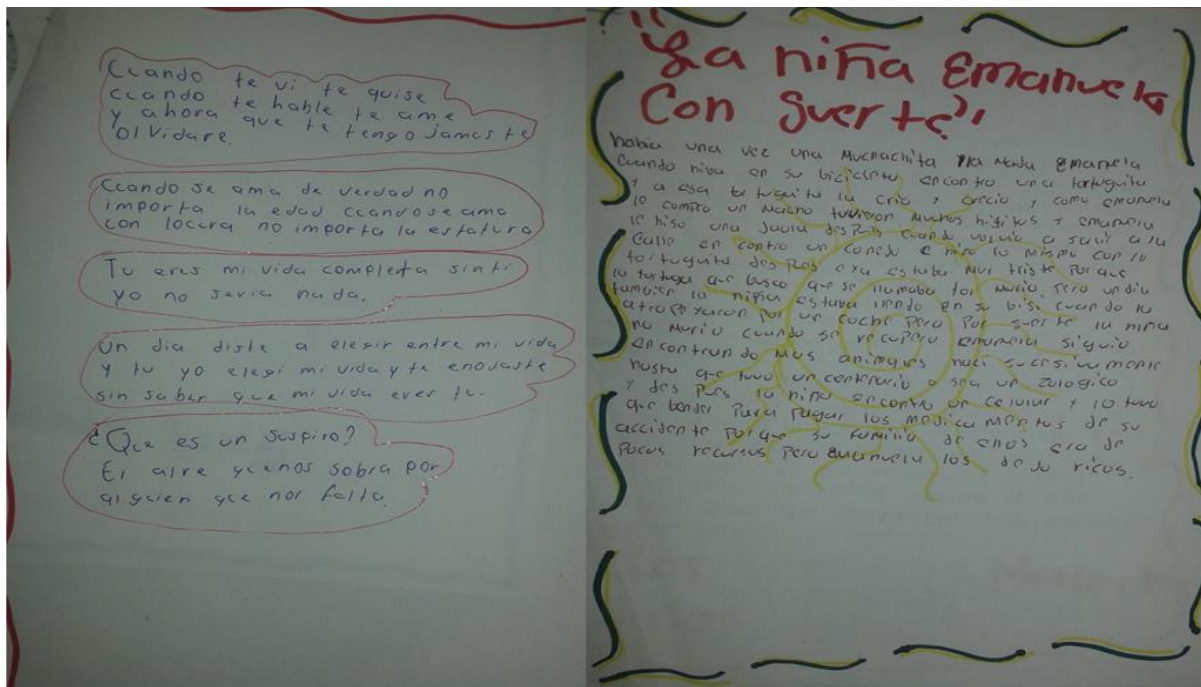 Cuando te vi te quise
cuando te hable te ame
y ahora que te tengo jamas te
olvidare.
Cuando se ama de verdad no
importa la edad cuando se ama
con locura no importa la estatura
Tu eres mi vida completa sin ti
yo no seria nada.
Un dia diste a elegir entre mi vida
y tu yo elegi mi vida y te enojaste
sin saber que mi vida eres tu.
¿Que es un suspiro?
El aire que nos sobra por
alguien que nos falta.
"La niña Emanuela
Con Suerte"
habia una vez una Muchachita lla Mada Emanuela
Cuando hiba en su bicicleta encontro una tortuguita
y a esa tortuguita la crio y crecio y como emanuela
le compro un Macho tuvieron Muchos higitos y emanuela
le hiso una Jaula despues cuando volvio a salir a la
Calle en contro un conejo e hiso lo mismo con la
tortuguita des pues ella estaba Muy triste Por que
la tortuga que busco que se llamaba tor Murio Pero un dia
tambien la niña estava llendo en su bisi cuando la
atropeyaron Por un coche Pero Por suerte la niña
no Murio cuando se recupero emanuela siguio
encontrando Mas animales haci sucesivamente
hasta que tuvo un centenario o sea un Zologico
y des pues la niña encontro un celular y lo tuvo
que bender Para Pagar los medica mentos de su
accidente Porque su familia de ellos era de
Pocos recursos Pero Emanuela los dejo ricos.